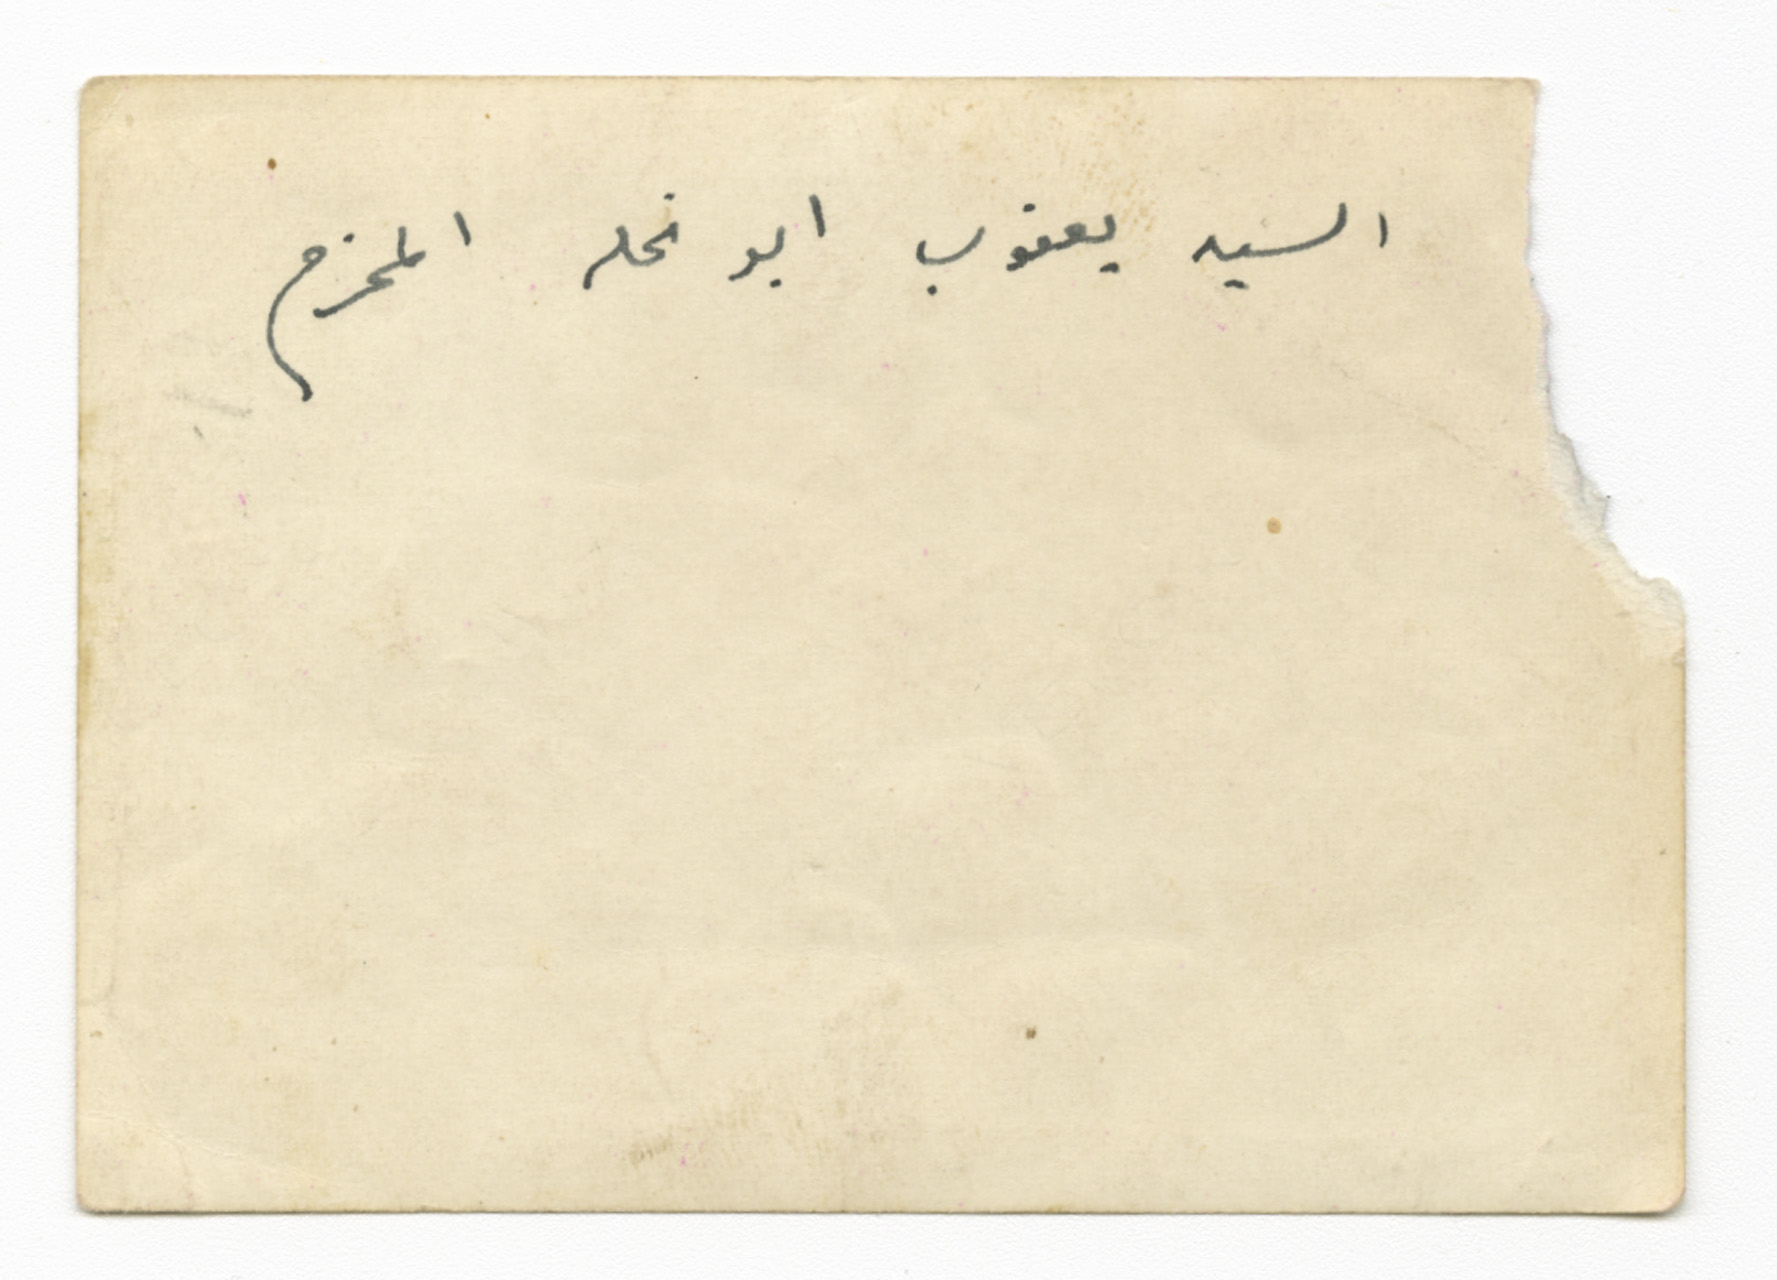 السيد يعقوب ابو نحله المحترم